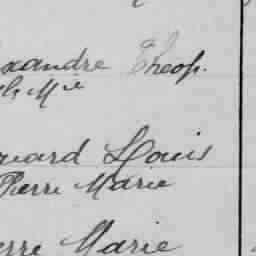 xandre Theop.
Mie
ouard Louis
Pierre Marie
erre Marie